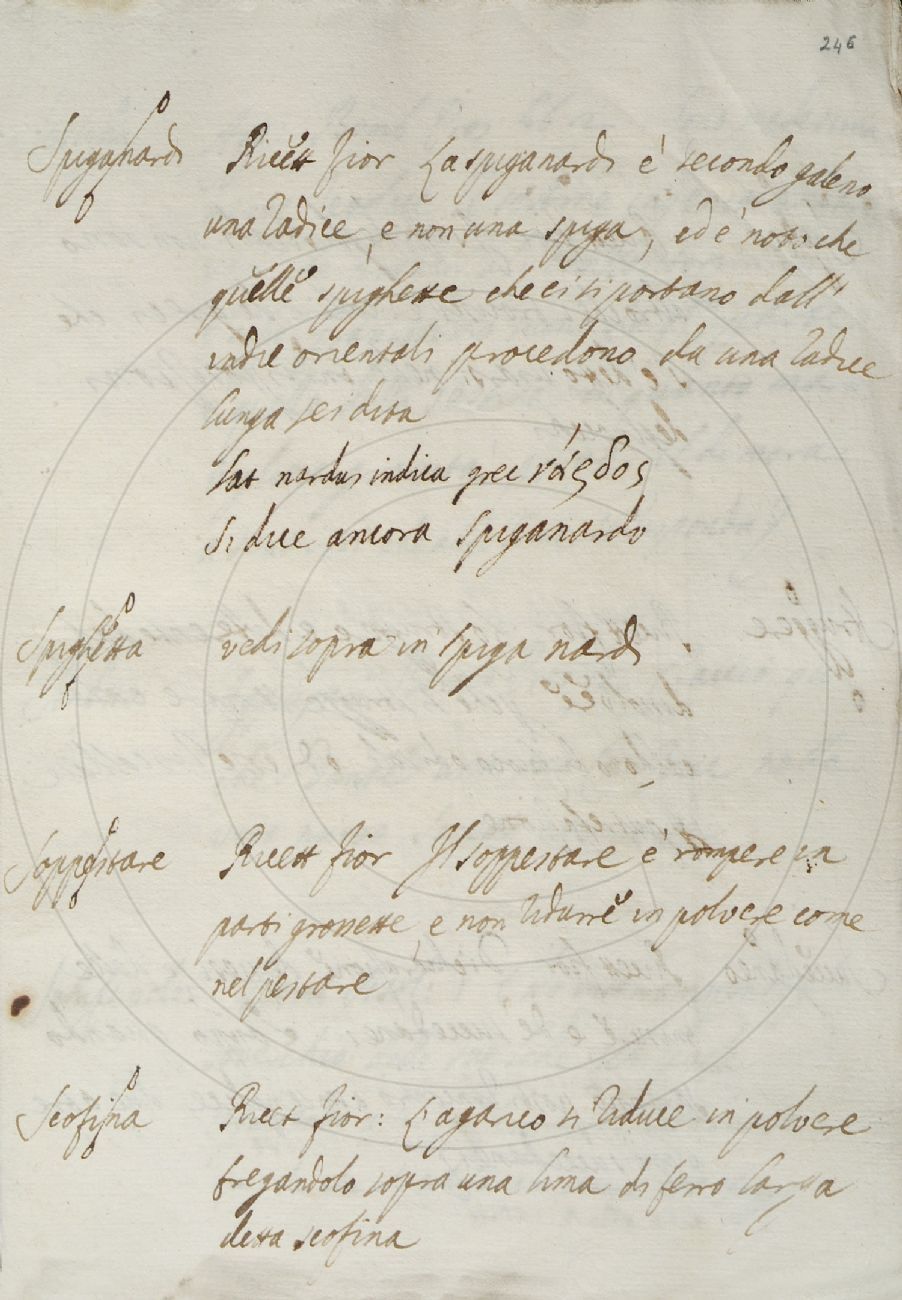 246
Spiganardi Ricett Fior La spiganardi é secondo galeno
una radice, e non una spiga, ed é noto che
quelle spighette che ci si portano dall'
indie orientali procedono da una radice
lunga sei dita
Lat nardus indica grec νάρδος
si dice ancora Spiganardo
Spighetta vedi sopra in spiga nardi
Soppestare Ricett Fior Il soppestare é rompere in
parti grossette, e non ridurre in polvere come
nel pestare
Scofina Ricet Fior: L'agarico si riduce in polvere
fregandolo sopra una lima di ferro larga
detta scofina